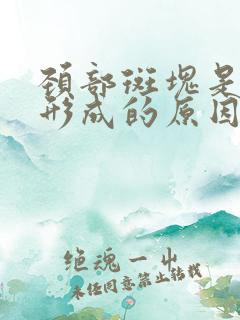 颈部斑块是
形成的原因
绝魂一出
未经同意禁止转载